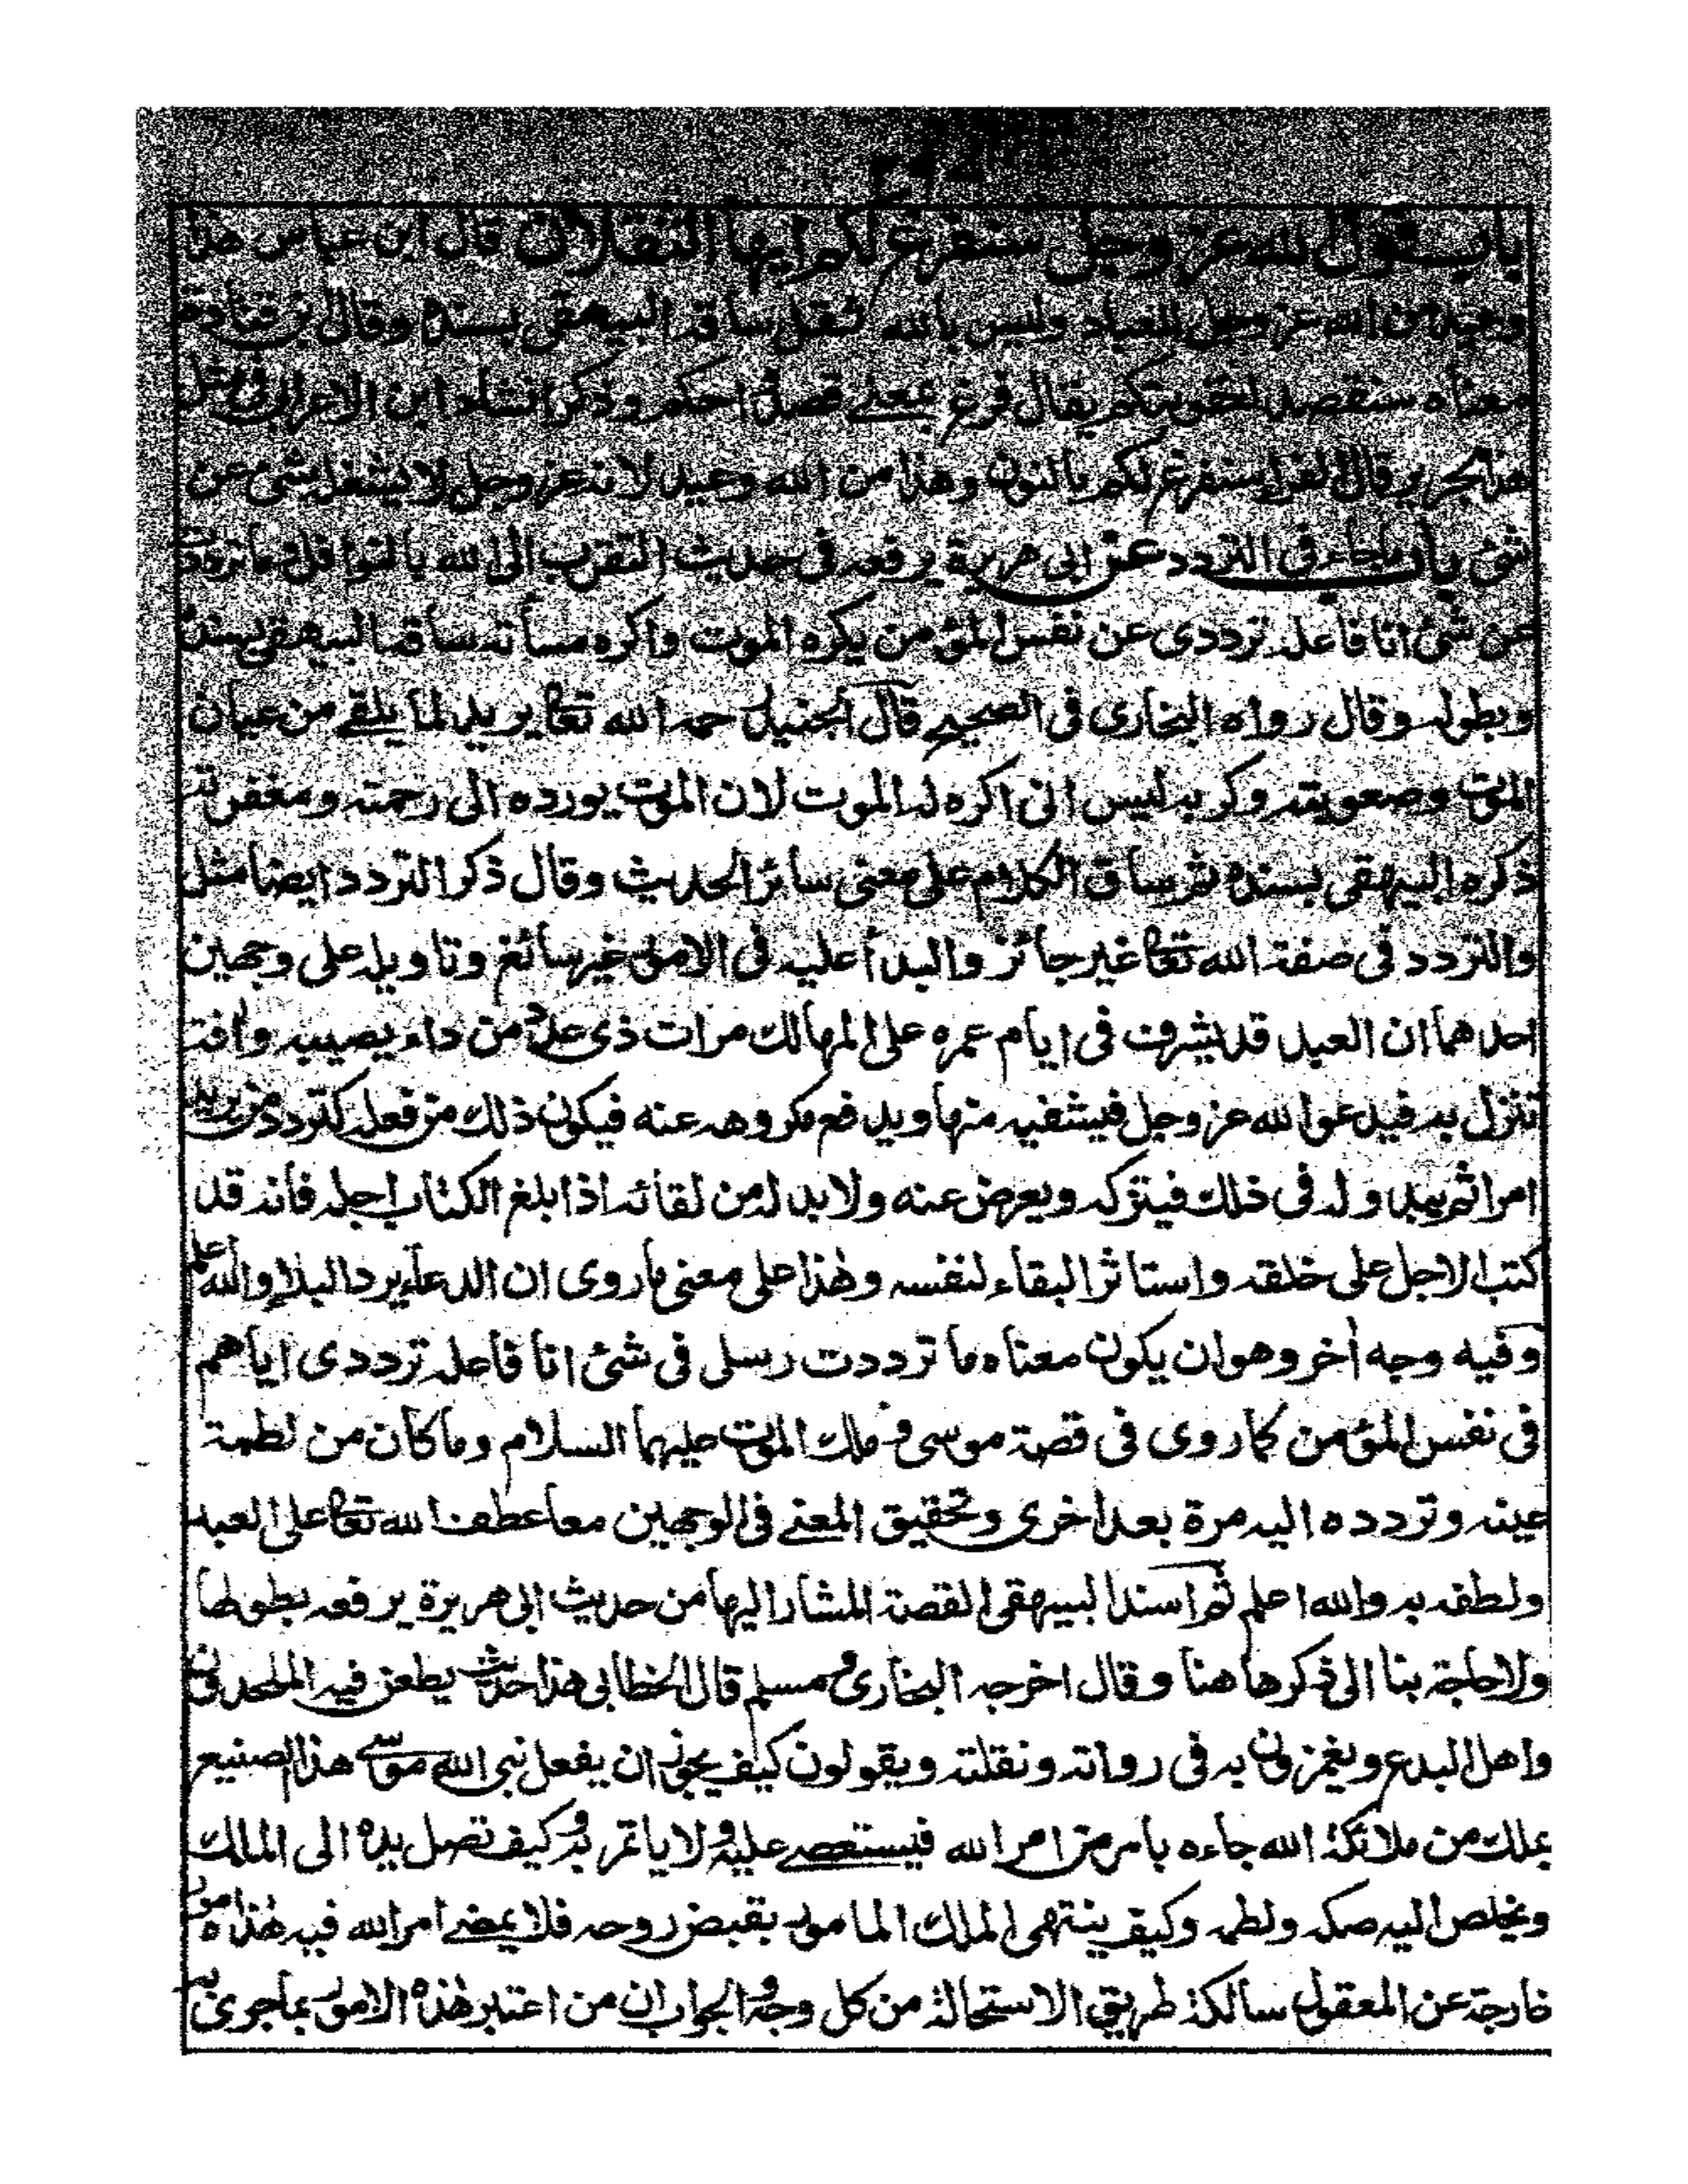 باب قول الله عز وجل سنفرغ لكم ايها الثقلان قال ابن عباس هذا
وعيد من الله عز وجل للعباد وليس بالله شغل ساقه البيهقي بسنده وقال قتادة
معناه سنقصد لعقوبتكم يقال فرغ بمعنى قصد احكم وذكر انشاد ابن الاعرابي في مثل
هذا لجرير قال الفراء سنفرغ لكم بالنون وهذا من الله وعيد لانه عز وجل لا يشغله شئ عن
شئ باب ماجاء في التردد عن ابى هريرة يرفعه فى حديث التقرب الى الله بالنوافل وما ترددت
عن شئ انا فاعله ترددى عن نفس المؤمن يكره الموت واكره مسأته ساقه البيهقى بسنده
وبطوله وقال رواه البخارى فى الصحيح قال الجنيد رحمه الله تعا يريد لما يلقے من عيان
الموت وصعوبته وكربه ليس انى اكره له الموت لان الموت يورده الى رحمته ومغفرته
ذكره البيهقى بسنده ثم ساق الكلام على معنى سائر الحديث وقال ذكر التردد ايضا مثل
والتردد فى صفة الله تعا غير جائز والبدأ عليه فى الامور غير سائغ وتاويله على وجهين
احدهما ان العبد قد يشرف فى ايام عمره على المهالك مرات ذى عدد من داء يصيبه وافة
تنزل به فيدعوا لله عز وجل فيشفيه منها ويدفع مكروهه عنه فيكون ذلك من فعله كتردد من يريد
امرا ثم يبدو له فى ذلك فيتركه ويعرض عنه ولا بد له من لقائه اذا بلغ الكتاب اجله فانه قد
كتب الاجل على خلقه واستاثر البقاء لنفسه وهذا على معنى ماروى ان الدعاء يرد البلاء والله اعلم
وفيه وجه أخر وهو ان يكون معناه ما ترددت رسلى فى شئ انا فاعله ترددى اياهم
فى نفس المؤمن كما روى فى قصة موسى و ملك الموت عليهما السلام وما كان من لطمة
عينه وتردده اليه مرة بعد اخرى وتحقيق المعنے فى الوجهين معا عطف الله تعا على العبد
ولطفه به والله اعلم ثم اسند البيهقى القصة المشار اليها من حديث ابى هريرة يرفعه بطولها
ولا حاجة بنا الى ذكرها هنا وقال اخرجه البخارى و مسلم قال الخطابى هذا حديث يطعن فيه الملحدون
واهل البدع ويغمزون به فى رواته ونقلته ويقولون كيف يجوز ان يفعل نبى الله موسے هذا الصنيع
بملك من ملائكة الله جاءه بامر من امر الله فيستعصے عليه ولا ياتمر به وكيف تصل يده الى الملك
ويخلص اليه صكه ولطمه وكيف ينتهى الملك المامور بقبض روحه فلا يمضے امر الله فيه هذه امور
خارجة عن المعقول سالكة طريق الاستحالة من كل وجه والجواب ان من اعتبر هذه الامور بما جرى به